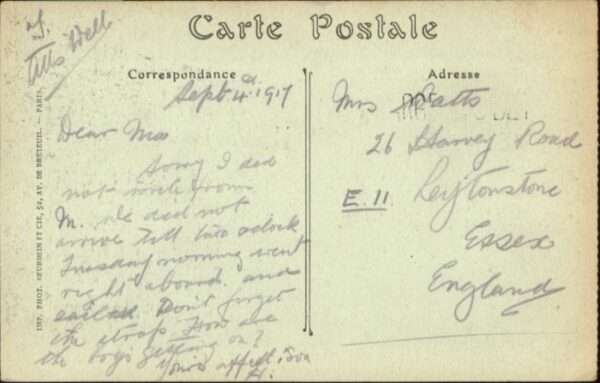 Carte Postale
Correspondance
Adresse
All's Well
Sept. 4. 1917
Dear Ma
Sorry I did
not write from
M. We did not
arrive till two o'clock
Tuesday morning went
right aboard and
sailed. Don't forget
the straps. How are
the boys getting on?
Your affect. Son
H.
Mrs Watts
26 Harvey Road
E. 11 Leytonstone
Essex
England
IMP. PHOT. NEURDEIN ET CIE, 52, AV. DE BRETEUIL. — PARIS.